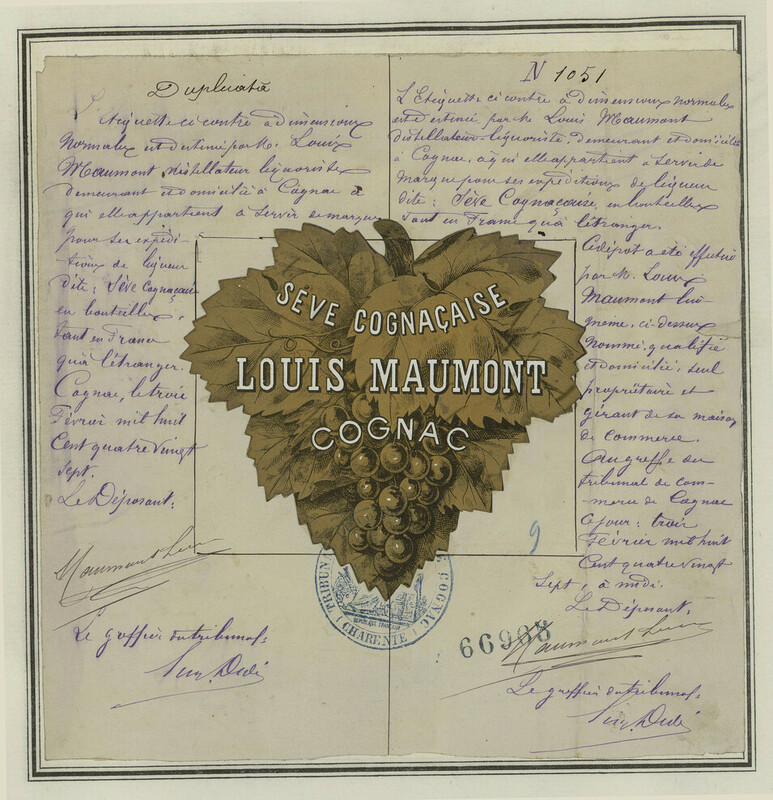 Duplicata
L'Etiquette ci contre à dimensions
normales est destiné par M. Louis
Maumont distillateur liquoriste
demeurant et domicilié à Cognac à
qui elle appartient à servir de marque
pour ses expédi-
tions de liqueur
dite : Sève Cognaçaise
en bouteilles,
tant en France
qu'à l'étranger.
Cognac, le trois
Février mil huit
Cent quatre vingt
sept.
Le Déposant,
Maumont Louis
Le greffier du tribunal,
N 1051
L'Etiquette ci contre à dimensions normales
est destinée par M. Louis Maumont
distillateur-liquoriste, demeurant et domicilié
à Cognac, à qui elle appartient à servir de
marque pour ses expéditions de liqueur
dite : Sève Cognaçaise, en bouteilles
tant en France qu'à l'étranger.
Ce dépot a été effectué
par M. Louis
Maumont lui-
même, ci-dessus
nommé, qualifié
et domicilié, seul
propriétaire et
gérant de sa maison
de commerce.
Au greffe du
tribunal de com-
merce de Cognac
ce jour : trois
Février mil huit
Cent quatre vingt
Sept, à midi.
Le Déposant,
Maumont Louis
Le greffier du tribunal,
SÈVE COGNAÇAISE
LOUIS MAUMONT
COGNAC
9
TRIBUNAL
COGNAC
RÉPUBLIQUE FRANÇAISE
(CHARENTE)
66968